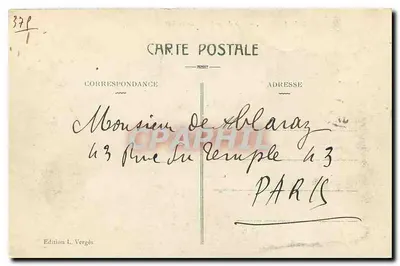 375
1
CARTE POSTALE
CORRESPONDANCE
ADRESSE
Monsieur de Ablaraz
43 Rue du Temple 43
PARIS
Edition L. Vergés